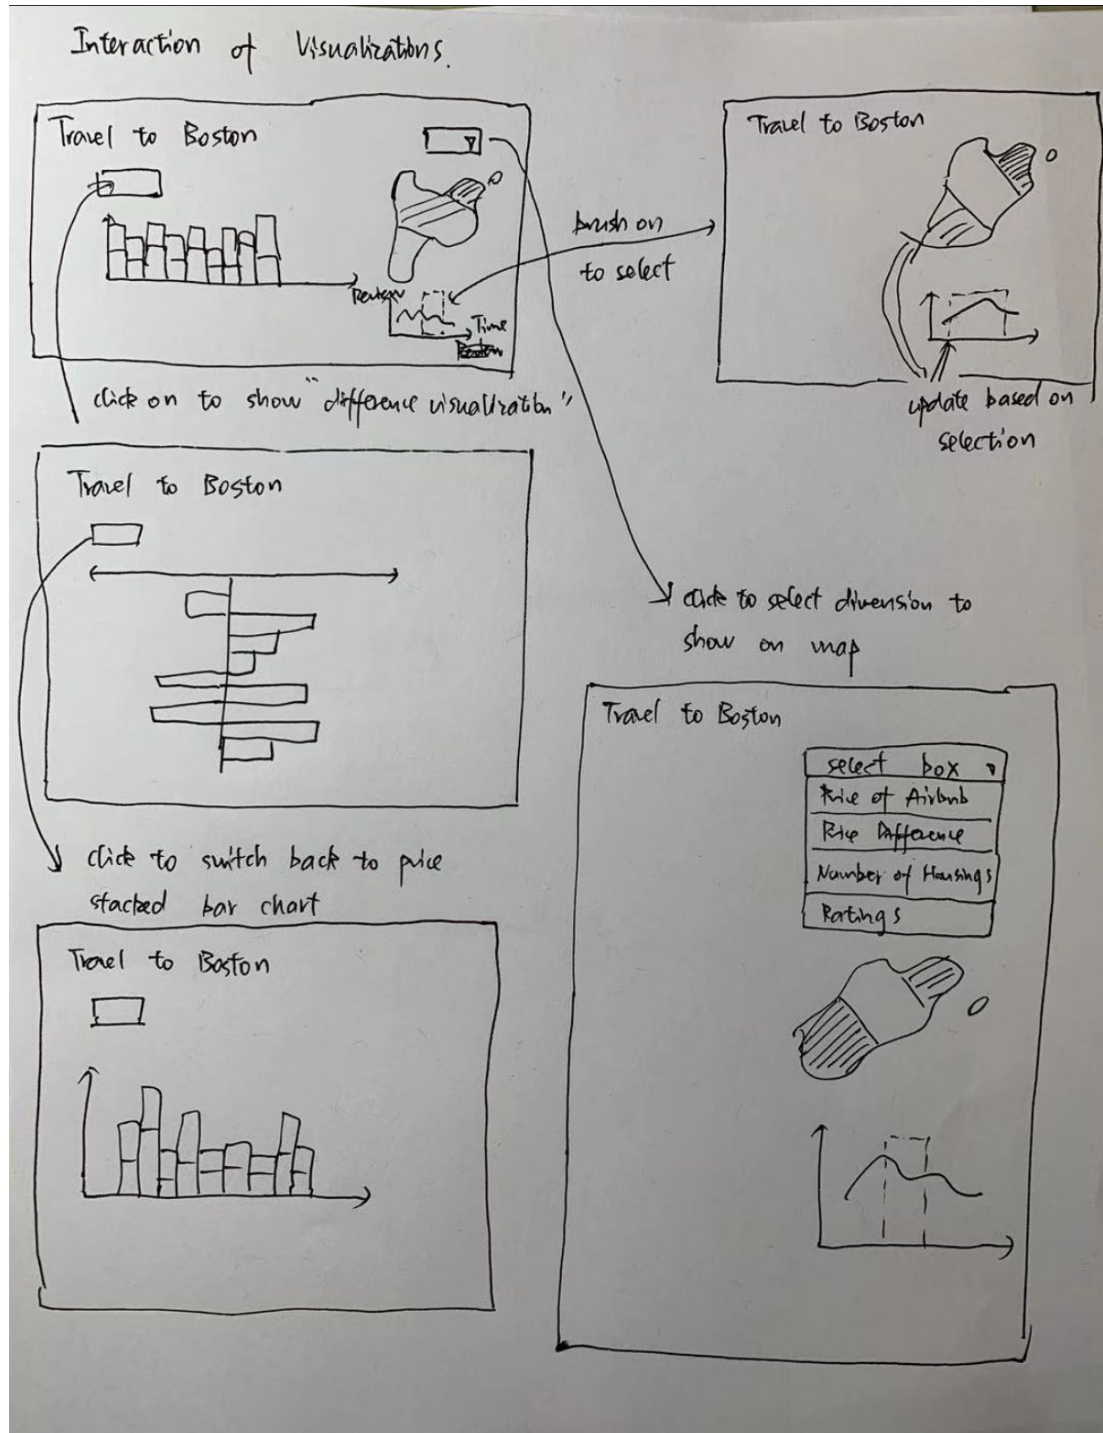 Interaction of Visualizations.
Travel to Boston
Review
Time
brush on
to select
Travel to Boston
update based on
selection
click on to show "difference visualization"
Travel to Boston
click to select dimension to
show on map
click to switch back to price
stacked bar chart
Travel to Boston
select box
Price of Airbnb
Price Difference
Number of Housings
Ratings
Travel to Boston